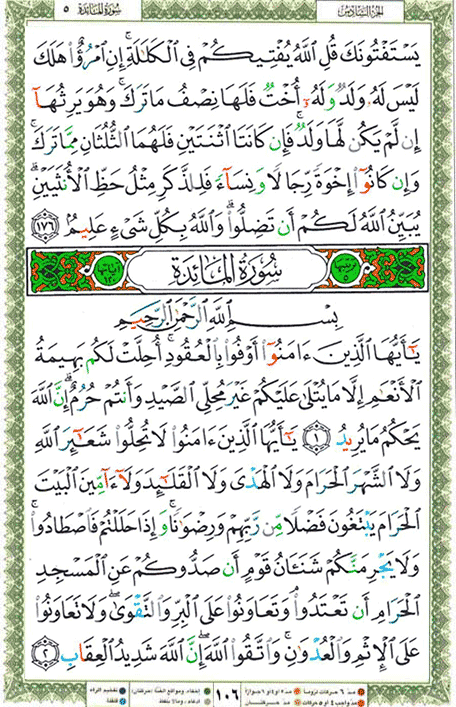 الجزء السادس
سورة المائدة ٥
يَسْتَفْتُونَكَ قُلِ ٱللَّهُ يُفْتِيكُمْ فِى ٱلْكَلَٰلَةِ ۚ إِنِ ٱمْرُؤٌا۟ هَلَكَ
لَيْسَ لَهُۥ وَلَدٌ وَلَهُۥٓ أُخْتٌ فَلَهَا نِصْفُ مَا تَرَكَ ۚ وَهُوَ يَرِثُهَآ
إِن لَّمْ يَكُن لَّهَا وَلَدٌ ۚ فَإِن كَانَتَا ٱثْنَتَيْنِ فَلَهُمَا ٱلثُّلُثَانِ مِمَّا تَرَكَ ۚ
وَإِن كَانُوٓا۟ إِخْوَةً رِّجَالًا وَنِسَآءً فَلِلذَّكَرِ مِثْلُ حَظِّ ٱلْأُنثَيَيْنِ ۗ
يُبَيِّنُ ٱللَّهُ لَكُمْ أَن تَضِلُّوا۟ ۗ وَٱللَّهُ بِكُلِّ شَىْءٍ عَلِيمٌۢ ١٧٦
سُورَةُ المَائِدَةِ
بِسْمِ ٱللَّهِ ٱلرَّحْمَٰنِ ٱلرَّحِيمِ
يَٰٓأَيُّهَا ٱلَّذِينَ ءَامَنُوٓا۟ أَوْفُوا۟ بِٱلْعُقُودِ ۚ أُحِلَّتْ لَكُم بَهِيمَةُ
ٱلْأَنْعَٰمِ إِلَّا مَا يُتْلَىٰ عَلَيْكُمْ غَيْرَ مُحِلِّى ٱلصَّيْدِ وَأَنتُمْ حُرُمٌ ۗ إِنَّ ٱللَّهَ
يَحْكُمُ مَا يُرِيدُ ١ يَٰٓأَيُّهَا ٱلَّذِينَ ءَامَنُوا۟ لَا تُحِلُّوا۟ شَعَٰٓئِرَ ٱللَّهِ
وَلَا ٱلشَّهْرَ ٱلْحَرَامَ وَلَا ٱلْهَدْىَ وَلَا ٱلْقَلَٰٓئِدَ وَلَآ ءَآمِّينَ ٱلْبَيْتَ
ٱلْحَرَامَ يَبْتَغُونَ فَضْلًا مِّن رَّبِّهِمْ وَرِضْوَٰنًا ۚ وَإِذَا حَلَلْتُمْ فَٱصْطَادُوا۟ ۚ
وَلَا يَجْرِمَنَّكُمْ شَنَـَٔانُ قَوْمٍ أَن صَدُّوكُمْ عَنِ ٱلْمَسْجِدِ
ٱلْحَرَامِ أَن تَعْتَدُوا۟ ۘ وَتَعَاوَنُوا۟ عَلَى ٱلْبِرِّ وَٱلتَّقْوَىٰ ۖ وَلَا تَعَاوَنُوا۟
عَلَى ٱلْإِثْمِ وَٱلْعُدْوَٰنِ ۚ وَٱتَّقُوا۟ ٱللَّهَ ۖ إِنَّ ٱللَّهَ شَدِيدُ ٱلْعِقَابِ ٢
١٠٦
مد ٦ حركات لزوماً مد ٢ أو ٤ أو ٦ جوازاً
مد واجب ٤ أو ٥ حركات مد حركتان
إخفاء، ومواقع الغنة (حركتان) تفخيم الراء
إدغام، وما لا يلفظ قلقلة